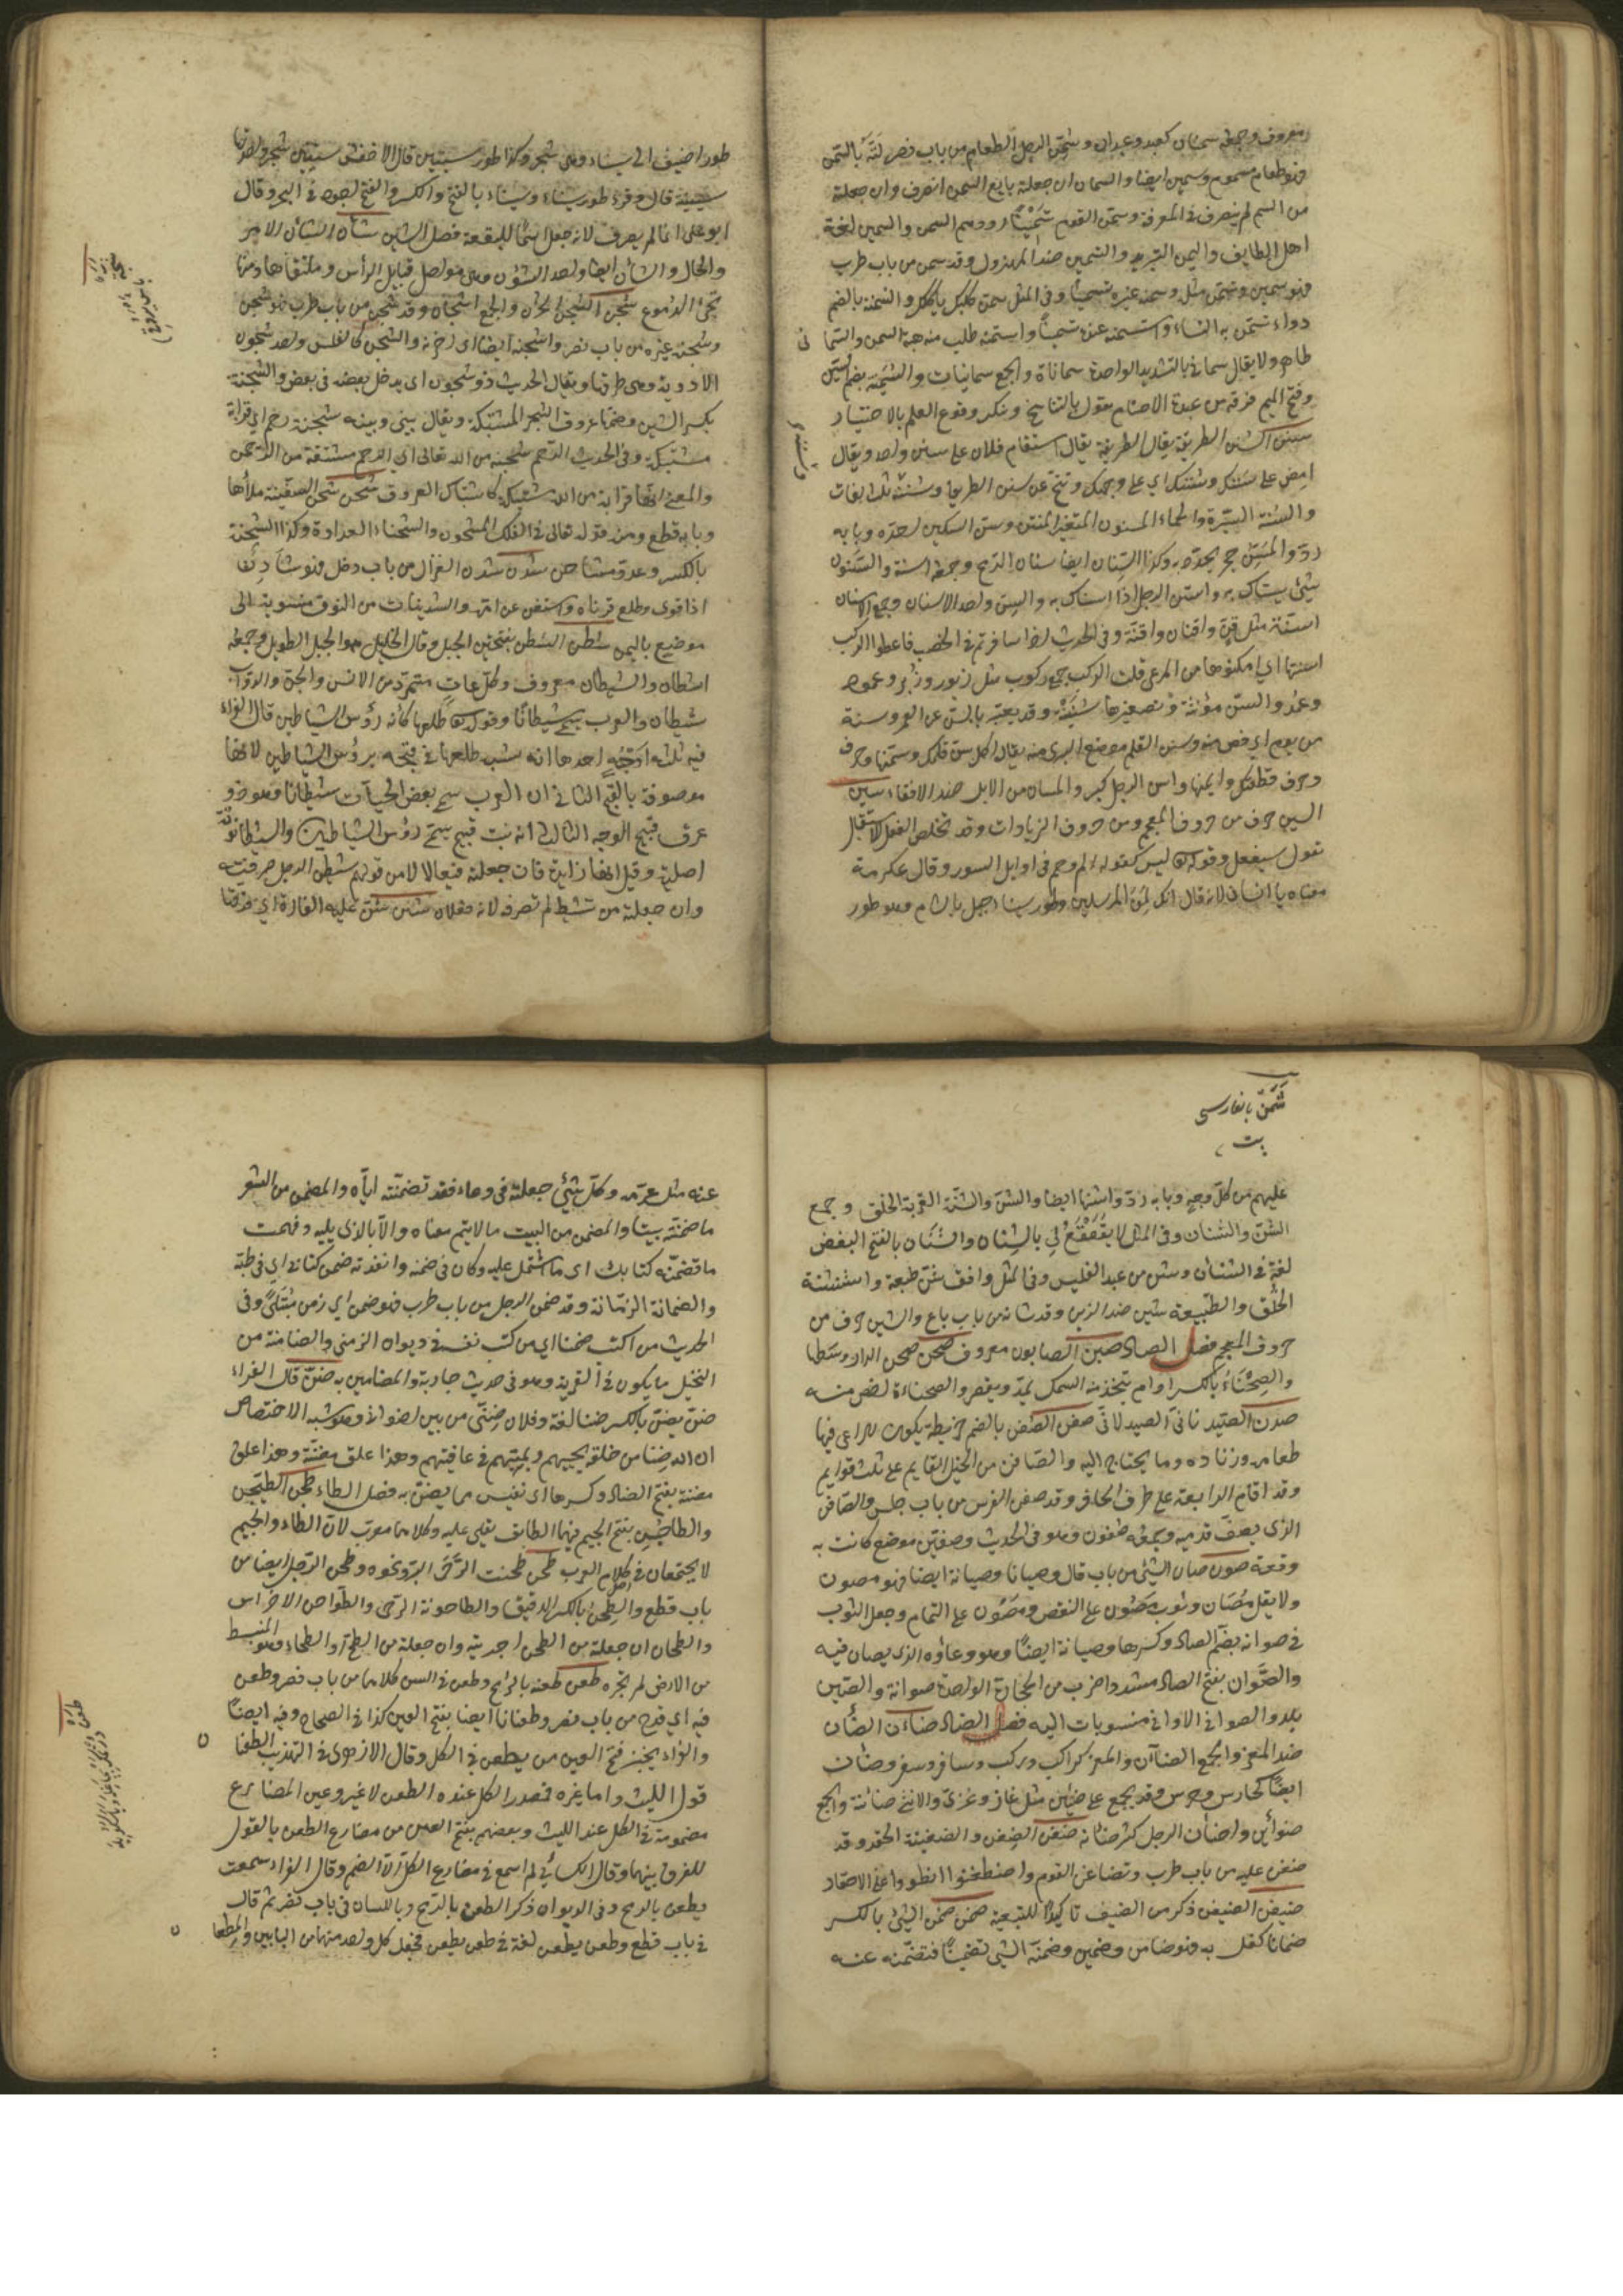 معروف وجمعه سمنان كعبد وعبدان وسمن الرجل الطعام من باب نصر لته بالسمن
فهو طعام مسموم وسمين ايضا والسمان ان جعلته بايع السمن انصرف وان جعلته
من السم لم ينصرف في المعرفة وسمن القوم تسمينا زودهم السمن والتسمين لغة
اهل الطايف واليمن التبريد والسمين ضد المهزول وقد سمن من باب طرب
فهو سمين وتسمن مثله وسمنه غيره تسمينا وفي المثل سمن كلبك ياكلك والسمنة بالضم
دواء تسمن به النساء واستسمنه عده سمينا واستمنه طلب منه هبة السمن والسما
نى
طاير ولا يقال سماني بالتشديد الواحدة سماناة والجمع سمانيات والسمنية بضم السين
وفتح الميم فرقة من عبدة الاصنام تقول بالتناسخ وتنكر وقوع العلم بالاخبار
سنن السنن الطريقة يقال استقام فلان على سنن واحد ويقال
امض على سننك وسننك اي على وجهك وتنح عن سنن الطريق وسننه ثلث لغات
والسنة السيرة والحماء المسنون المتغير المنتن وسن السكين احده وبابه
رد والمسن حجر يحدد به وكذا السنان ايضا سنان الرمح وجمعه اسنة والسنون
شيئ يستاك به واستن الرجل اذا استاك به والسن واحد الاسنان وجمع الاسنان
اسنة مثل قن واقنان واقنة وفي الحديث اذا سافرتم في الخصب فاعطوا الركب
اسنتها اي امكنوها من المرعى قلت الركب جمع ركوب مثل زبور وزبر وعمود
وعمد والسن مؤنثة وتصغيرها سنينة وقد يعبر بالسن عن العمر وسنة
من ثوم اي فص منه وسن القلم موضع البرى منه يقال اكل سن قلمك وسمنها وحرف
وحرف قطتك وايمنها واسن الرجل كبر والمسان من الابل ضد الافتاء سين
السين حرف من حروف المعجم وهي من حروف الزيادات وقد تخلص الفعل للاستقبال
تقول سيفعل وقوله تعالى يس كقوله الم وحم في اوايل السور وقال عكرمة
معناه يا انسان لانه قال انك لمن المرسلين وطور سينا جبل بالشام وهو طور
طور اضيف الى سيناء وهي شجر وكذا طور سينين قال الاخفش سينين شجر واحدتها
سينينة قال وقرء طور سيناء وسيناء بالفتح والكسر والفتح اجود في النحو وقال
ابو علي انما لم يصرف لانه جعل اسما للبقعة فصل الشين شان الشان الامر
والحال والشان ايضا واحد الشؤن وهي مواصل قبايل الرأس وملتقاها ومنها
تجئ الدموع شجن الشجن الحزن والجمع اشجان وقد شجن من باب طرب فهو شجن
وشجنه غيره من باب نصر واشجنه ايضا اي احزنه والشجن كالفلس واحد شجون
الاودية وهي طرقها ويقال الحديث ذو شجون اي يدخل بعضه في بعض والشجنة
بكسر الشين وضمها عروق الشجر المشتبكة ويقال بيني وبينه شجنة رحم اي قرابة
مشتبكة وفي الحديث الرحم شجنة من الله تعالى اي الرحم مشتقة من الرحمن
والمعنى انها قرابة من الله مشتبكة كاشتباك العروق شحن شحن السفينة ملأها
وبابه قطع ومنه قوله تعالى في الفلك المشحون والشحناء العداوة وكذا الشحنة
بالكسر وعدو مشاحن شدن شدن الغزال من باب دخل فهو شادن
اذا قوى وطلع قرناه واستغنى عن امه والشدنيات من النوق منسوبة الى
موضع باليمن شطن الشطن بفتحتين الحبل وقال الخليل هو الحبل الطويل وجمعه
اشطان والشيطان معروف وكل عات متمرد من الانس والجن والدواب
شيطان والعرب تسمي الحية شيطانا وقوله تعالى طلعها كأنه رؤس الشياطين قال الفراء
فيه ثلثة اوجه احدها انه شبه طلعها في قبحه برؤس الشياطين لانها
موصوفة بالقبح الثاني ان العرب تسمي بعض الحيات شيطانا وهو ذو
عرف قبيح الوجه الثالث انه نبت قبيح يسمى رؤس الشياطين والشيطان نونه
اصلية وقيل انها زايدة فان جعلته فيعالا من قولهم شيطن الرجل صرفته
وان جعلته من تشيط لم تصرفه لانه فعلان شنن شن عليه الغارة اي فرقها
شمن بالفارسى
بت
عليهم من كل وجه وبابه رد واشنها ايضا والشن والشنة القربة الخلق وجمع
الشن والشنان وفي المثل لا يقعقع لي بالشنان والشنان بالفتح البغض
لغة في الشنئان وشن من عبد القيس وفي المثل وافق شن طبقة والشنشنة
الخلق والطبيعة شين ضد الزين وقد شانه من باب باع والشين حرف من
حروف المعجم فصل الصاد صبن الصابون معروف صحن صحن الدار وسطها
والصحناء بالكسر ادام يتخذ منه السمك يمد ويقصر والصحناءة اخص منه
صفن الصفن بالضم خريطة يكون للراعي فيها
طعامه وزناده وما يحتاج اليه والصافن من الخيل القايم على ثلث قوايم
وقد اقام الرابعة على طرف الحافر وقد صفن الفرس من باب جلس والصافن
الذي يصف قدميه وجمعه صفون وهو في الحديث وصفين موضع كانت به
وقعة صون صان الشيئ من باب قال وصيانا وصيانة ايضا فهو مصون
ولا تقل مصان وثوب مصون على النقص ومصوون على التمام وجعل الثوب
في صوانه بضم الصاد وكسرها وصيانة ايضا وهو وعاؤه الذي يصان فيه
والصوان بفتح الصاد مشددا ضرب من الحجارة الواحدة صوانة والصين
بلد والصواني الاواني منسوبات اليه فصل الضاد ضان الضأن
ضد المعز والجمع الضان والمعز كراكب وركب وسافر وسفر وضان
ايضا كحارس وحرس وقد يجمع على ضئين مثل غاز وغزى والانثى ضائنة والجمع
ضوائن واضأن الرجل كثر ضأنه ضغن الضغن والضغينة الحقد وقد
ضغن عليه من باب طرب وتضاغن القوم واضطغنوا انطووا على الاحقاد
ضيفن الضيفن ذكر من الضيف تاكيدا للتبعية ضمن ضمن الشيئ بالكسر
ضمانا كفل به فهو ضامن وضمين وضمنه الشيئ تضمينا فتضمنه عنه
عنه مثل غرمه وكل شيئ جعلته في وعاء فقد تضمنته اياه والمضمن من الشعر
ما ضمنته بيتا والمضمن من البيت ما لا يتم معناه الا بالذي يليه وفهمت
ما تضمنه كتابك اى ما اشتمل عليه وكان في ضمنه وانفذته ضمن كتابي اي في طيه
والضمانة الزمانة وقد ضمن الرجل من باب طرب فهو ضمن اي زمن مبتلى وفي
الحديث من اكتتب ضمنا اي من كتب نفسه في ديوان الزمنى والضامنة من
النخيل ما يكون في القرية وهو في حديث حارثة والمضامين به ضنن قال الفراء
ضن يضن بالكسر ضنا لغة وفلان ضنى من بين اخواني وهو شبه الاختصاص
ان لله ضنا من خلقه يحييهم ويميتهم في عافية وهذا علق مضنة وهذا علق
مضنة بفتح الضاد وكسرها اى نفيس مما يضن به فصل الطاء طجن الطيجن
والطاجن بفتح الجيم فيهما الطابق يقلى عليه وكلاهما معرب لان الطاء والجيم
لا يجتمعان في اصل كلام العرب طحن طحنت الرحى البر ونحوه وطحن الرجل ايضا من
باب قطع والطحن بالكسر الدقيق والطاحونة الرحى والطواحن الاضراس
والطحان ان جعلته من الطحن اجريته وان جعلته من الطح او الطحاء وهو المنبسط
من الارض لم تجره طعن طعنه بالرمح وطعن في السن كلاهما من باب نصر وطعن
فيه اي قدح من باب نصر وطعنانا ايضا بفتح العين كذا في الصحاح وفيه ايضا
والفراء يجيز فتح العين من يطعن في الكل وقال الازهري في التهذيب الطعنا
ن
قول الليث واما غيره فمصدر الكل عنده الطعن لا غير وعين المضارع
مضمومة في الكل عند الليث وبعضهم بفتح العين من مضارع الطعن بالقول
للفرق بينهما وقال الكسائي لم اسمع في مضارع الكل الا الضم وقال الفراء سمعت
يطعن بالرمح وفي الديوان ذكر الطعن بالرمح وباللسان في باب نصر ثم قال
في باب قطع وطعن يطعن لغة في طعن يطعن فجعل كل واحد منهما من البابين والمطعا
ن